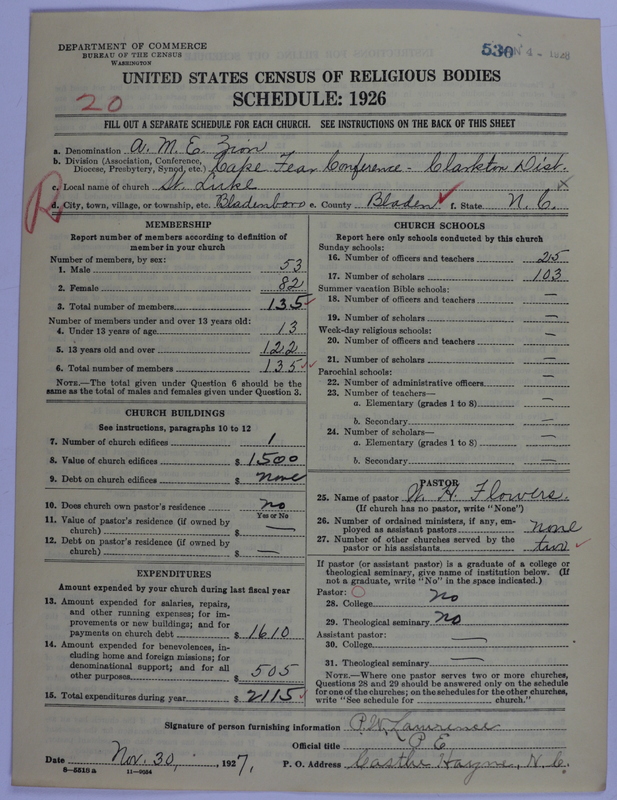 DEPARTMENT OF COMMERCE
BUREAU OF THE CENSUS
WASHINGTON
530
4 - 1928
UNITED STATES CENSUS OF RELIGIOUS BODIES
20
SCHEDULE: 1926
FILL OUT A SEPARATE SCHEDULE FOR EACH CHURCH. SEE INSTRUCTIONS ON THE BACK OF THIS SHEET
a. Denomination A. M. E. Zion
b. Division (Association, Conference, Diocese, Presbytery, Synod, etc.) Cape Fear Conference - Clarkton Dist.
c. Local name of church St. Luke x
R
d. City, town, village, or township, etc. Bladenboro e. County Bladen ✓ f. State N. C.
MEMBERSHIP
Report number of members according to definition of
member in your church
Number of members, by sex:
1. Male 53
2. Female 82
3. Total number of members 135 ✓
Number of members under and over 13 years old:
4. Under 13 years of age 13
5. 13 years old and over 122
6. Total number of members 135 ✓✓
NOTE.—The total given under Question 6 should be
same as the total of males and females given under Question 3.
CHURCH BUILDINGS
See instructions, paragraphs 10 to 12
7. Number of church edifices 1
8. Value of church edifices $ 1500
9. Debt on church edifices $ None
10. Does church own pastor's residence no
Yes or No
11. Value of pastor's residence (if owned by
church) $ —
12. Debt on pastor's residence (if owned by
church) $ —
EXPENDITURES
Amount expended by your church during last fiscal year
13. Amount expended for salaries, repairs,
and other running expenses; for im-
provements or new buildings; and for
payments on church debt $ 1610
14. Amount expended for benevolences, in-
cluding home and foreign missions; for
denominational support; and for all
other purposes $ 505
15. Total expenditures during year $ 2115 ✓
CHURCH SCHOOLS
Report here only schools conducted by this church
Sunday schools:
16. Number of officers and teachers 25
17. Number of scholars 103
Summer vacation Bible schools:
18. Number of officers and teachers —
19. Number of scholars —
Week-day religious schools:
20. Number of officers and teachers —
21. Number of scholars —
Parochial schools:
22. Number of administrative officers —
23. Number of teachers—
a. Elementary (grades 1 to 8) —
b. Secondary —
24. Number of scholars—
a. Elementary (grades 1 to 8) —
b. Secondary —
PASTOR
25. Name of pastor W. H. Flowers.
(If church has no pastor, write "None")
26. Number of ordained ministers, if any, em-
ployed as assistant pastors none
27. Number of other churches served by the
pastor or his assistants two ✓
If pastor (or assistant pastor) is a graduate of a college or
theological seminary, give name of institution below. (If
not a graduate, write "No" in the space indicated.)
Pastor:
28. College no
29. Theological seminary No
Assistant pastor:
30. College —
31. Theological seminary —
NOTE.—Where one pastor serves two or more churches,
Questions 28 and 29 should be answered only on the schedule
for one of the churches; on the schedules for the other churches,
write "See schedule for ........ church."
Signature of person furnishing information P. W. Lawrence
Official title P. E.
Date Nov. 30, , 1927, P. O. Address Castle Hayne, N. C.
8—5518 a 11—9064